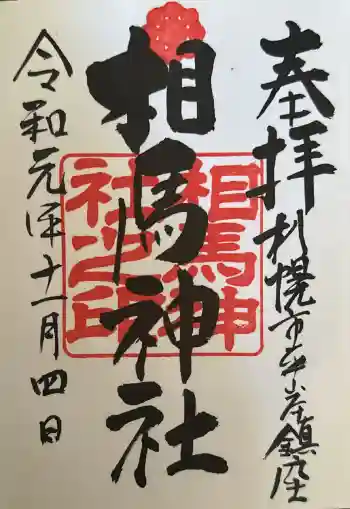 奉拝
札幌市平岸鎮座
相馬神社
相馬神
社之印
令和元年十一月四日